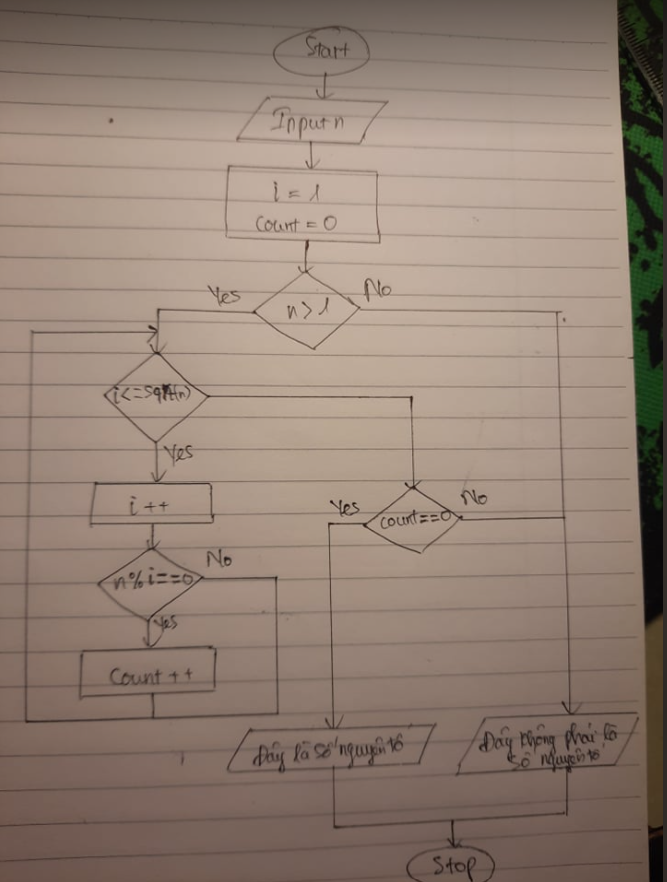 Start
Input n
i = 1
Count = 0
Yes
n > 1
No
i<=Sqrt(n)
Yes
i ++
Yes
count==0
No
n%i==0
No
Yes
Count ++
Đây là số nguyên tố
Đây không phải là
số nguyên tố
Stop